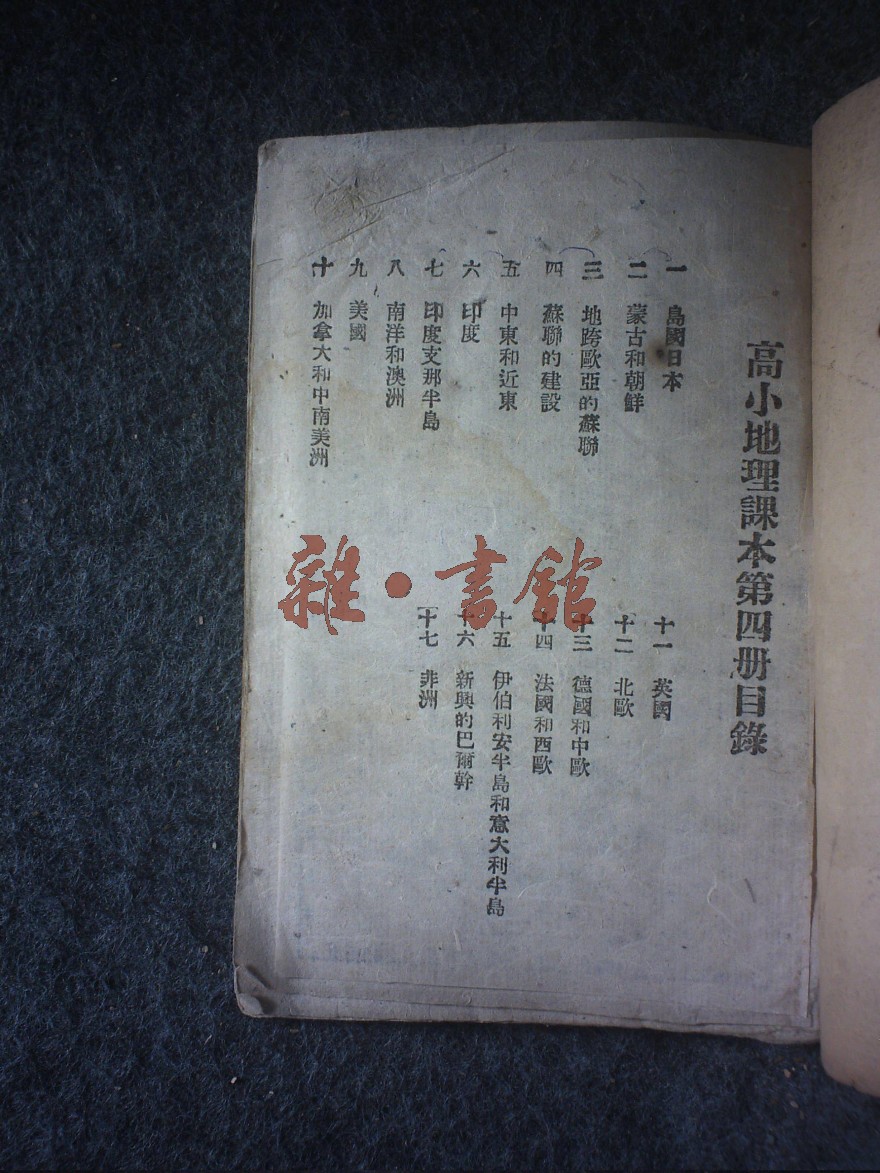 高小地理課本第四册目錄
一 島國日本
二 蒙古和朝鮮
三 地跨歐亞的蘇聯
四 蘇聯的建設
五 中東和近東
六 印度
七 印度支那半島
八 南洋和澳洲
九 美國
十 加拿大和中南美洲
十一 英國
十二 北歐
十三 德國和中歐
十四 法國和西歐
十五 伊伯利安半島和意大利半島
十六 新興的巴爾幹
十七 非洲
雜·書館